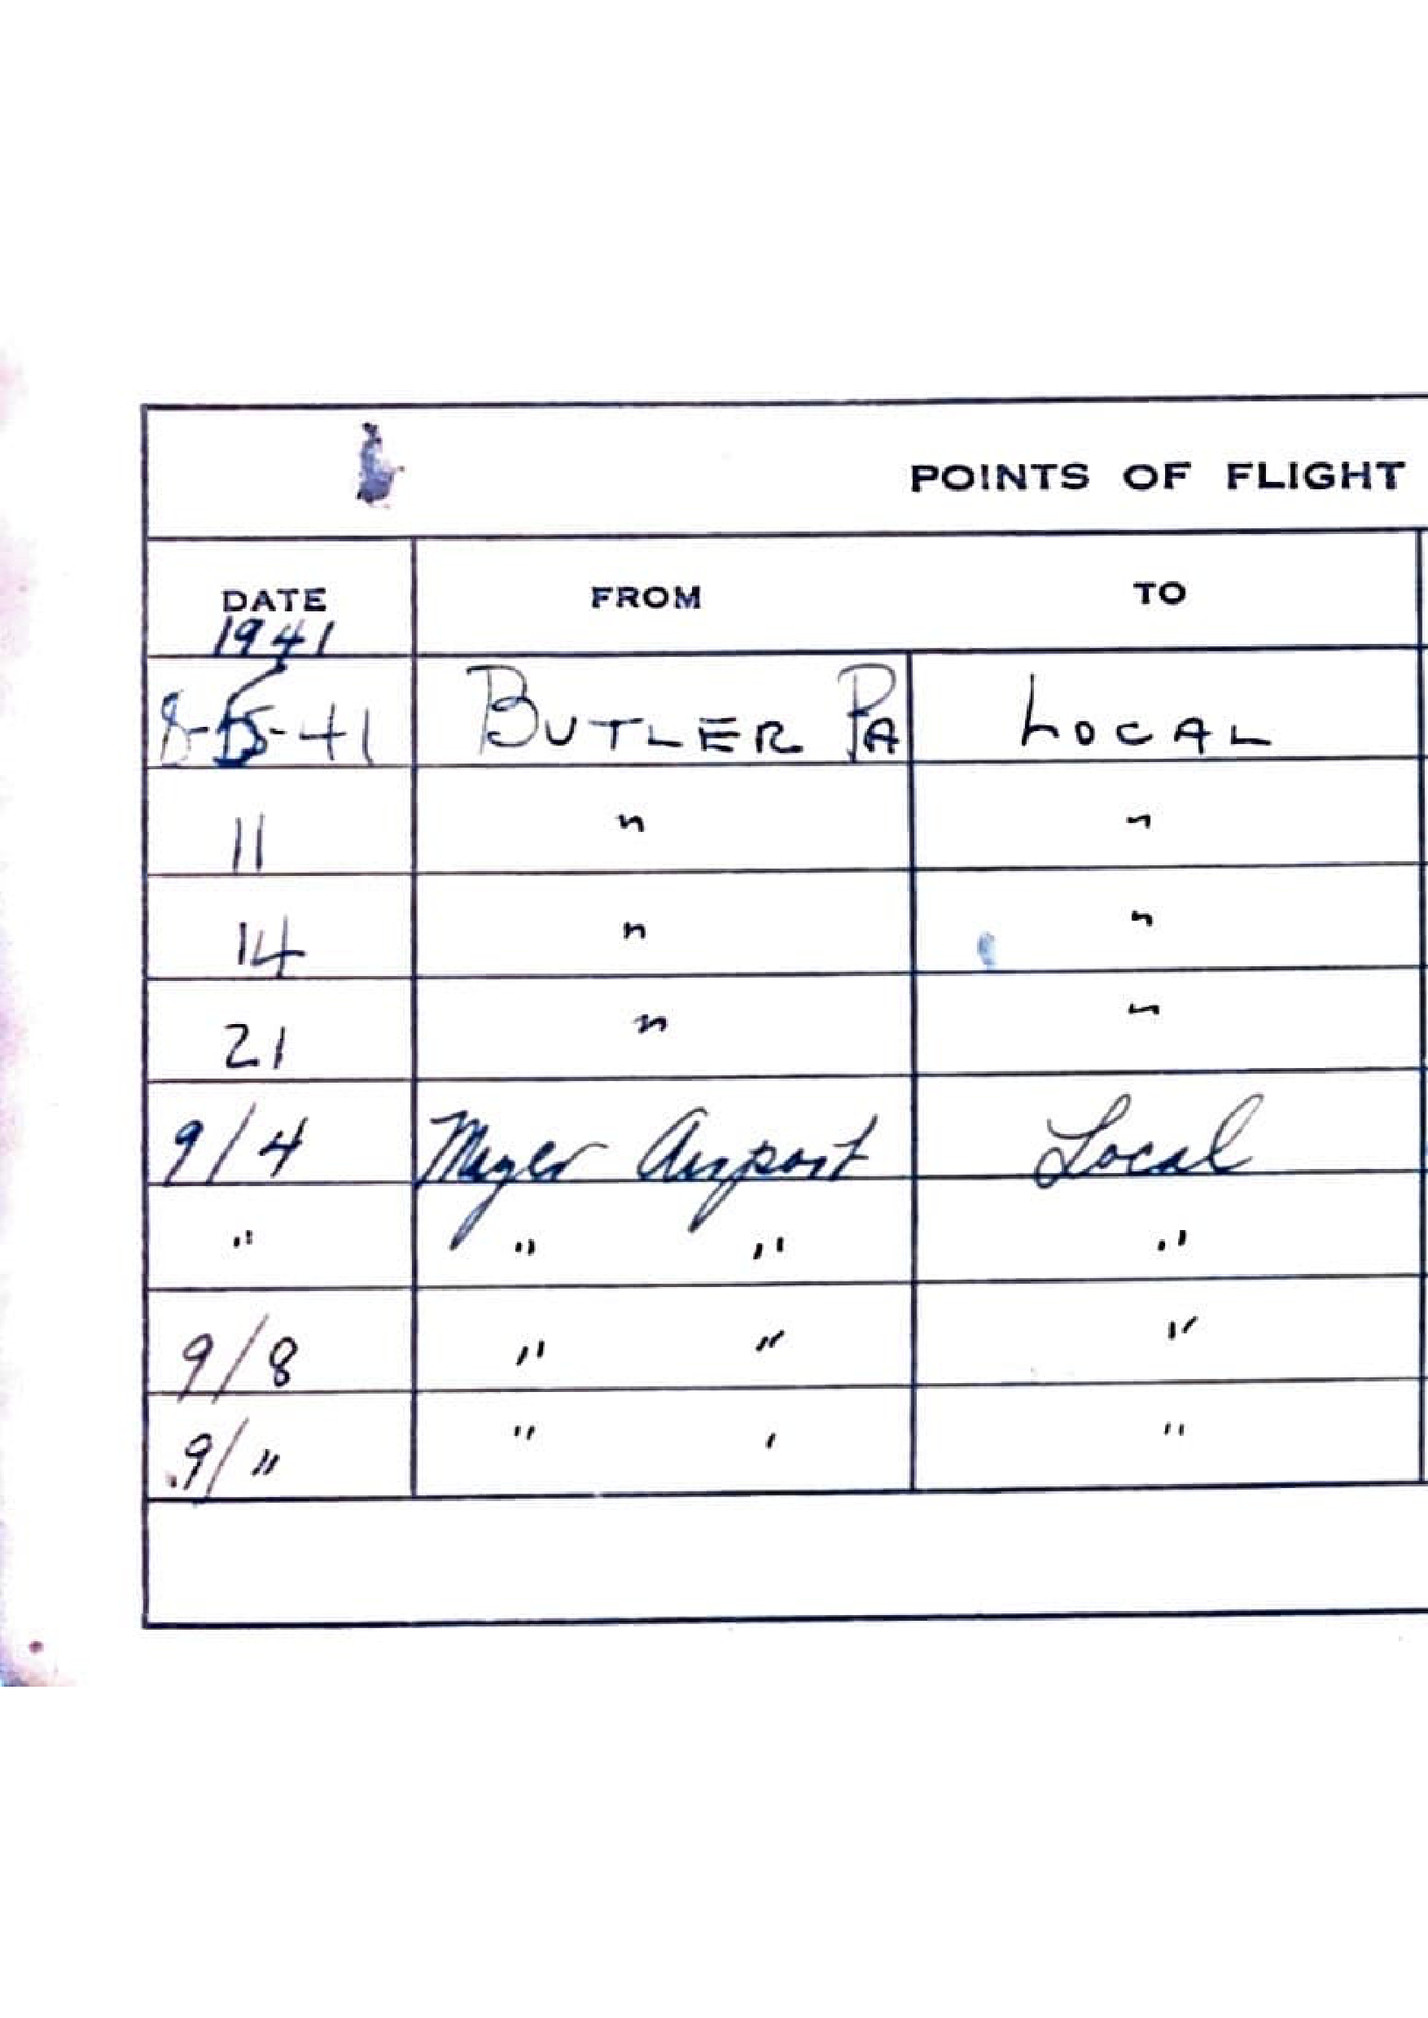 POINTS OF FLIGHT
DATE FROM TO
1941
8-5-41 BUTLER PA LOCAL
11 " "
14 " "
21 " "
9/4 Meyer Airport Local
" " " "
9/8 " " "
9/" " ' "